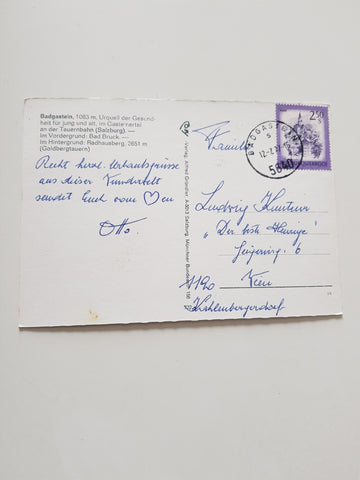 Badgastein, 1083 m, Urquell der Gesund-
heit für jung und alt, im Gasteinertal
an der Tauernbahn (Salzburg). —
Im Vordergrund: Bad Bruck. —
Im Hintergrund: Radhausberg, 2651 m
(Goldbergtauern)
Recht herzl. Urlaubsgrüsse
aus dieser Wunderwelt
sendet Euch vom ♡en
Otto.
Verlag Alfred Gründler, A-5013 Salzburg, Münchner Bundesstr.
BADGASTEIN
5640
2.50
Familie
Ludwig
„Der bste Heurige"
6
1190 Wien
Kahlenbergerdorf